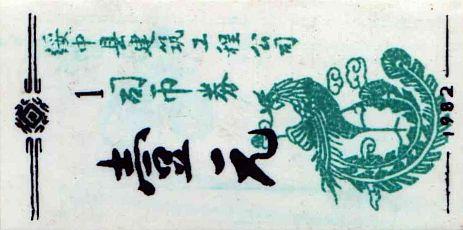 绥中县建筑工程公司
1 司币券
壹元
1982